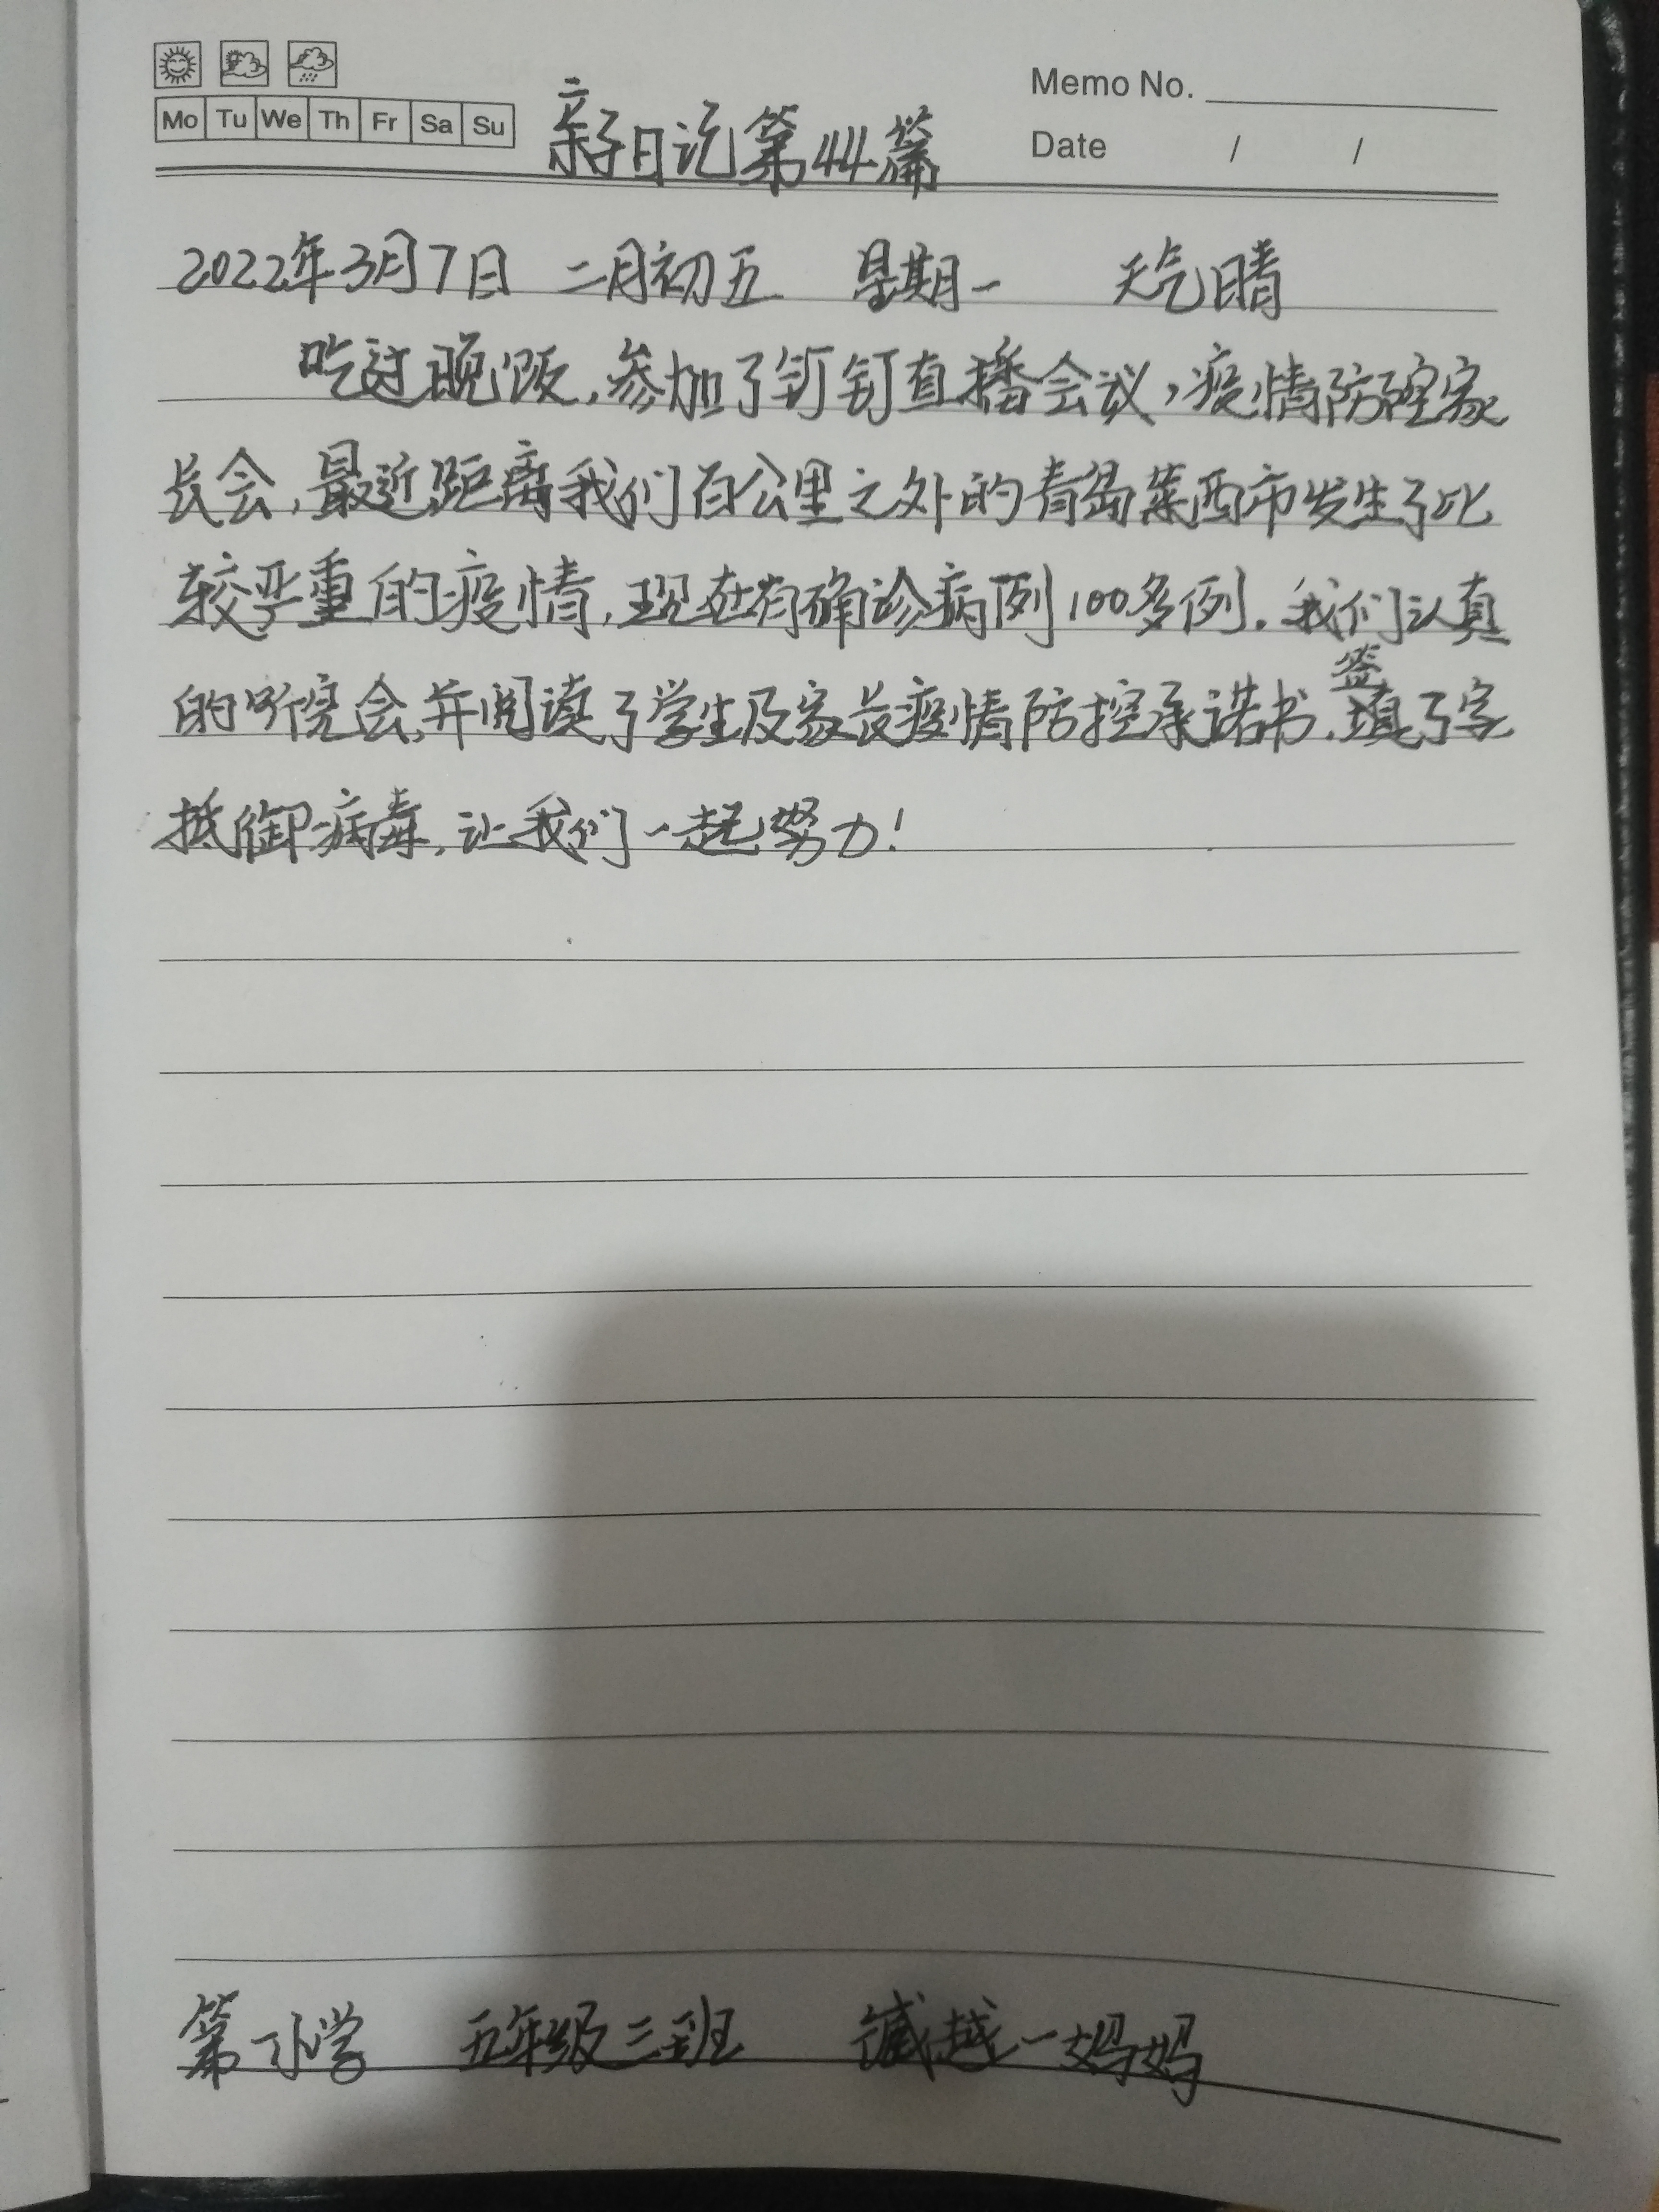 Mo Tu We Th Fr Sa Su
亲子日记第44篇
Memo No.
Date / /
2022年3月7日 二月初五 星期一 天气晴
吃过晚饭,参加了钉钉直播会议,疫情防控家
长会,最近距离我们百公里之外的青岛莱西市发生了比
较严重的疫情,现在有确诊病例100多例.我们认真
的听完会,并阅读了学生及家长疫情防控承诺书.签填了字
抵御病毒,让我们一起努力!
第一小学 五年级三班 臧越一妈妈